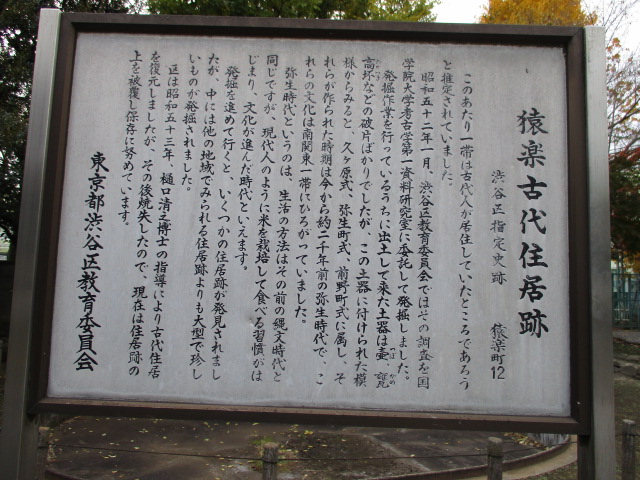 猿楽古代住居跡
渋谷区指定史跡 猿楽町12
このあたり一帯は古代人が居住していたところであろう
と推定されていました。
昭和五十二年一月、渋谷区教育委員会ではその調査を国
学院大学考古学第一資料研究室に委託して発掘しました。
発掘作業を行っているうちに出土して来た土器は壷、甕
高坏などの破片ばかりでしたが、この土器に付けられた模
様からみると、久ヶ原式、弥生町式、前野町式に属し、そ
れらが作られた時期は今から約二千年前の弥生時代で、こ
れらの文化は南関東一帯にひろがっていました。
弥生時代というのは、生活の方法はその前の縄文時代と
同じですが、現代人のように米を栽培して食べる習慣がは
じまり、文化が進んだ時代といえます。
発掘を進めて行くと、いくつかの住居跡が発見されまし
たが、中には他の地域でみられる住居跡よりも大型で珍し
いものが発掘されました。
区は昭和五十三年、樋口清之博士の指導により古代住居
を復元しましたが、その後焼失したので、現在は住居跡の
上を被覆し保存に努めています。
東京都渋谷区教育委員会